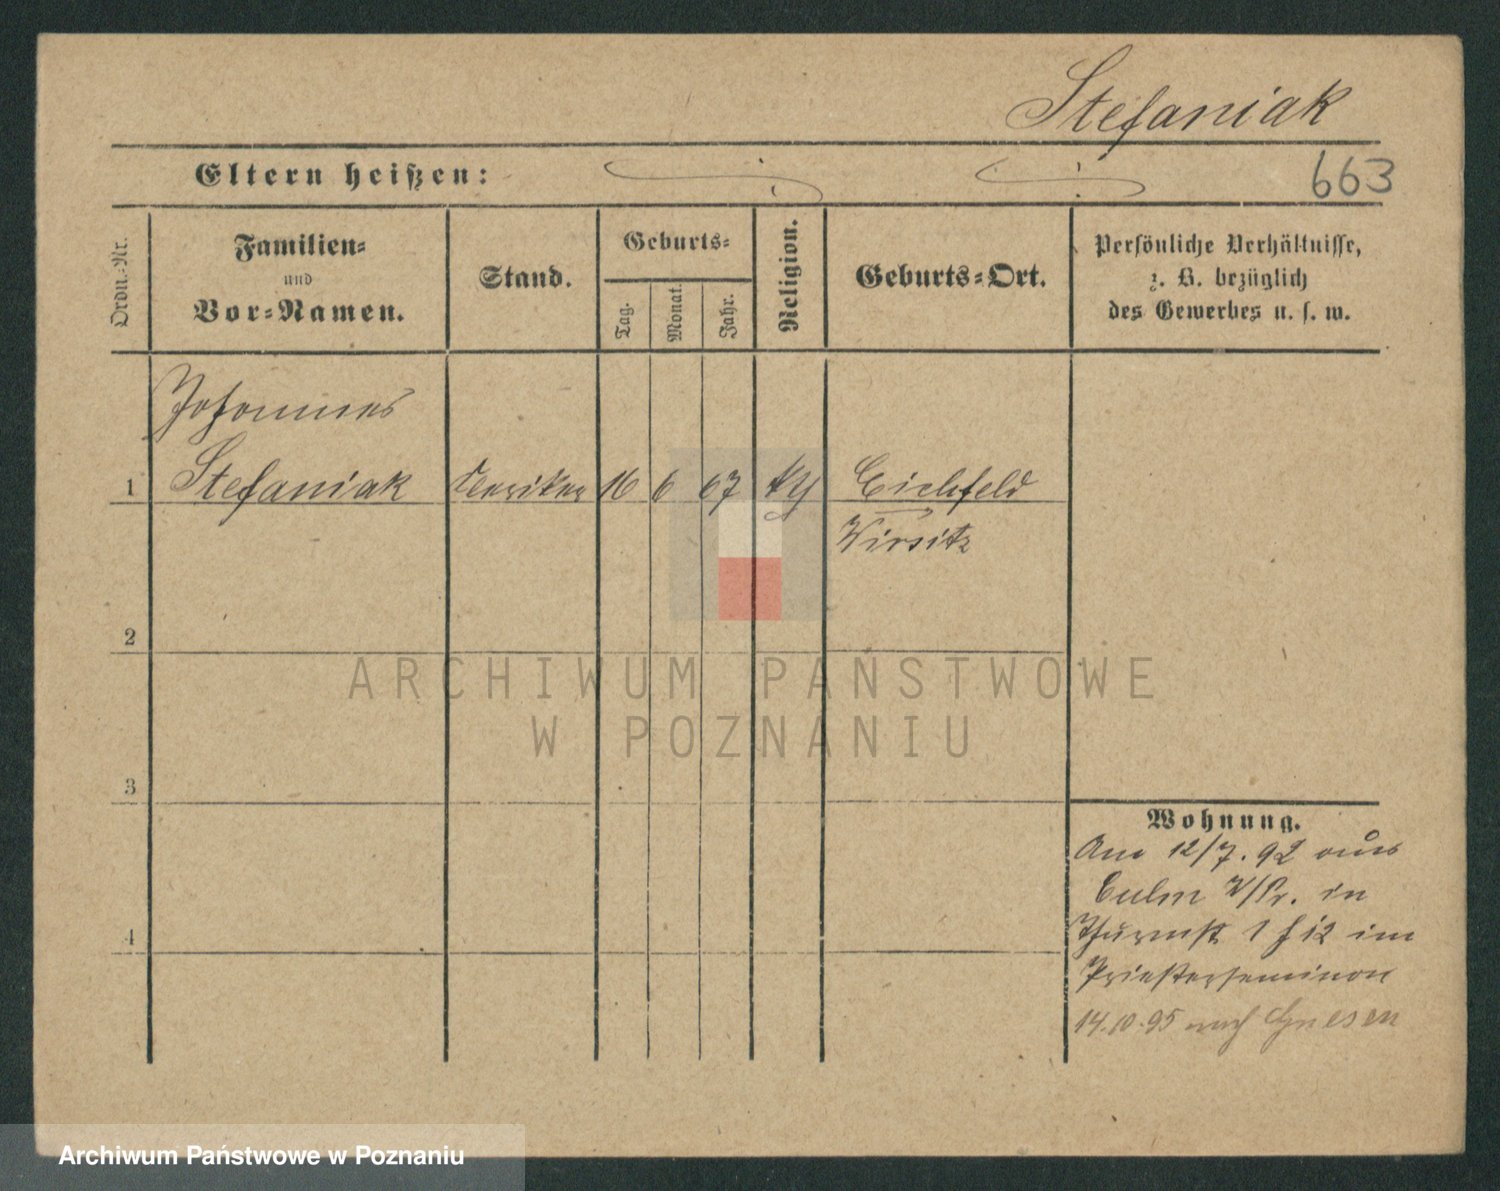 Stefaniak
Eltern heißen:
663
Ordn.-Nr.
Familien-
und
Vor-Namen.
Stand.
Geburts-
Tag.
Monat.
Jahr.
Religion.
Geburts-Ort.
Persönliche Verhältnisse,
z. B. bezüglich
des Gewerbes u. s. w.
Johannes
1 Stefaniak Cleriker 16 6 67 Eichfeld
Wirsitz
2
3
4
Wohnung.
Am 12/7.92 aus
Culm W/Pr. in
12 im
Priesterseminar
14.10.95 nach Gnesen
ARCHIWUM PAŃSTWOWE
W POZNANIU
Archiwum Państwowe w Poznaniu